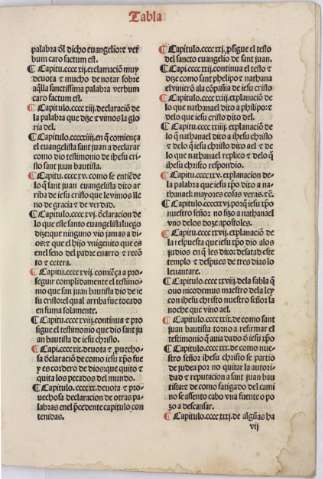 Tabla
palabra del dicho euangelio et ver
bum caro factum est.
¶ Capitu.ccccxij.exclamaciõ muy
deuota e mucho de notar sobre
aq̃lla sanctissima palabra verbum
caro factum est.
¶ Capitulo.ccccxiij.declaració de
la palabra que dize e vimos la glo
ria del.
¶ Capitulo.ccccxiiij.en q̃ comiença
el euangelista sant juan a declarar
como dio testimonio de jhesu cri
sto sant juan bautista.
¶ Capitu.ccccxv. como se entiẽde
lo q̃ sant juan euangelista dixo ar
riba de jesu cristo que le vimos lle
no de gracia e de verdad.
¶ Capitulo.ccccxvj. declaracion de
lo que este santo euangelista luego
dize que ninguno vio jamas a di
os: e que el hijo vnigenito que es
en el seno del padre
¶ Capitu.ccccxvij. comiẽça a pro
seguir complidamente el testimo
nio que san juan bautista dio de je
su cristo el qual arriba fue tocado
en suma solamente.
¶ Capitu.ccccxviij.continua e pro
sigue el testimonio que dio sant ju
an bautista de jesu cristo.
¶ Capi.ccccxix.deuota e puecho
sa declaració de como jesu xp̃o fue
y es cordero de dios: que quito e
quita los pecados del mundo.
¶ Capitulo.ccccxx. deuota e pro
uechosa declaracion de otras pa
labras en el p̃cedente capitulo con
tenidas.
¶ Capitulo.ccccxxj. p̃sigue el testo
del sancto euangelio de sant juan.
¶ Capi.ccccxxij.continua el testo e
dize como sant phelipo e nathana
el vinierõ a la cõpañia de jesu cristo
¶ Capitulo.ccccxxiij.explanació de
lo q̃ nathanael dixo a philipo: e
delo que jesu cristo dixo del.
¶ Capitulo.ccccxxiiij. explanació de
lo q̃ nathanael dixo a jhesu christo
e delo q̃ jesu christo dixo a el e de
lo que nathanael replico e delo q̃
jhesu christo respondio.
¶ Capitulo.ccccxxv. explanacion de
la palabra que jesu xp̃o dixo a na
thanael: mayores cosas veras etc̃.
¶ Capitulo.ccccxxvj. por q̃ jesu xp̃o
nuestro señor no fizo a nathanael
vno delos doze apostoles.
¶ Capitulo.ccccxxvij. explanació de
la respuesta que jesu xp̃o dio alos
judios en q̃ les dixo: desatad este
templo e despues de tres dias lo
leuantare.
¶ Capitulo.ccccxxviij. dela fabla q̃
ouo nicodemus maestro dela ley
con jhesu christo nuestro señor la
noche que vino ael.
¶ Capitulo.ccccxxix. de como sant
juan bautista torno a reformar el
testimonio q̃ auia dado d̃ jesu xp̃o
¶ Capitulo.ccccxxx. de como nue
stro señor jhesu christo se partio
de judea por no quitar la autori
dad e reputacion a sant juan bau
tista: e de como fatigado del cami
no se assento cabo vna fuente o po
zo a descansar.
¶ Capitulo.ccccxxxj. de algũas ha
vij